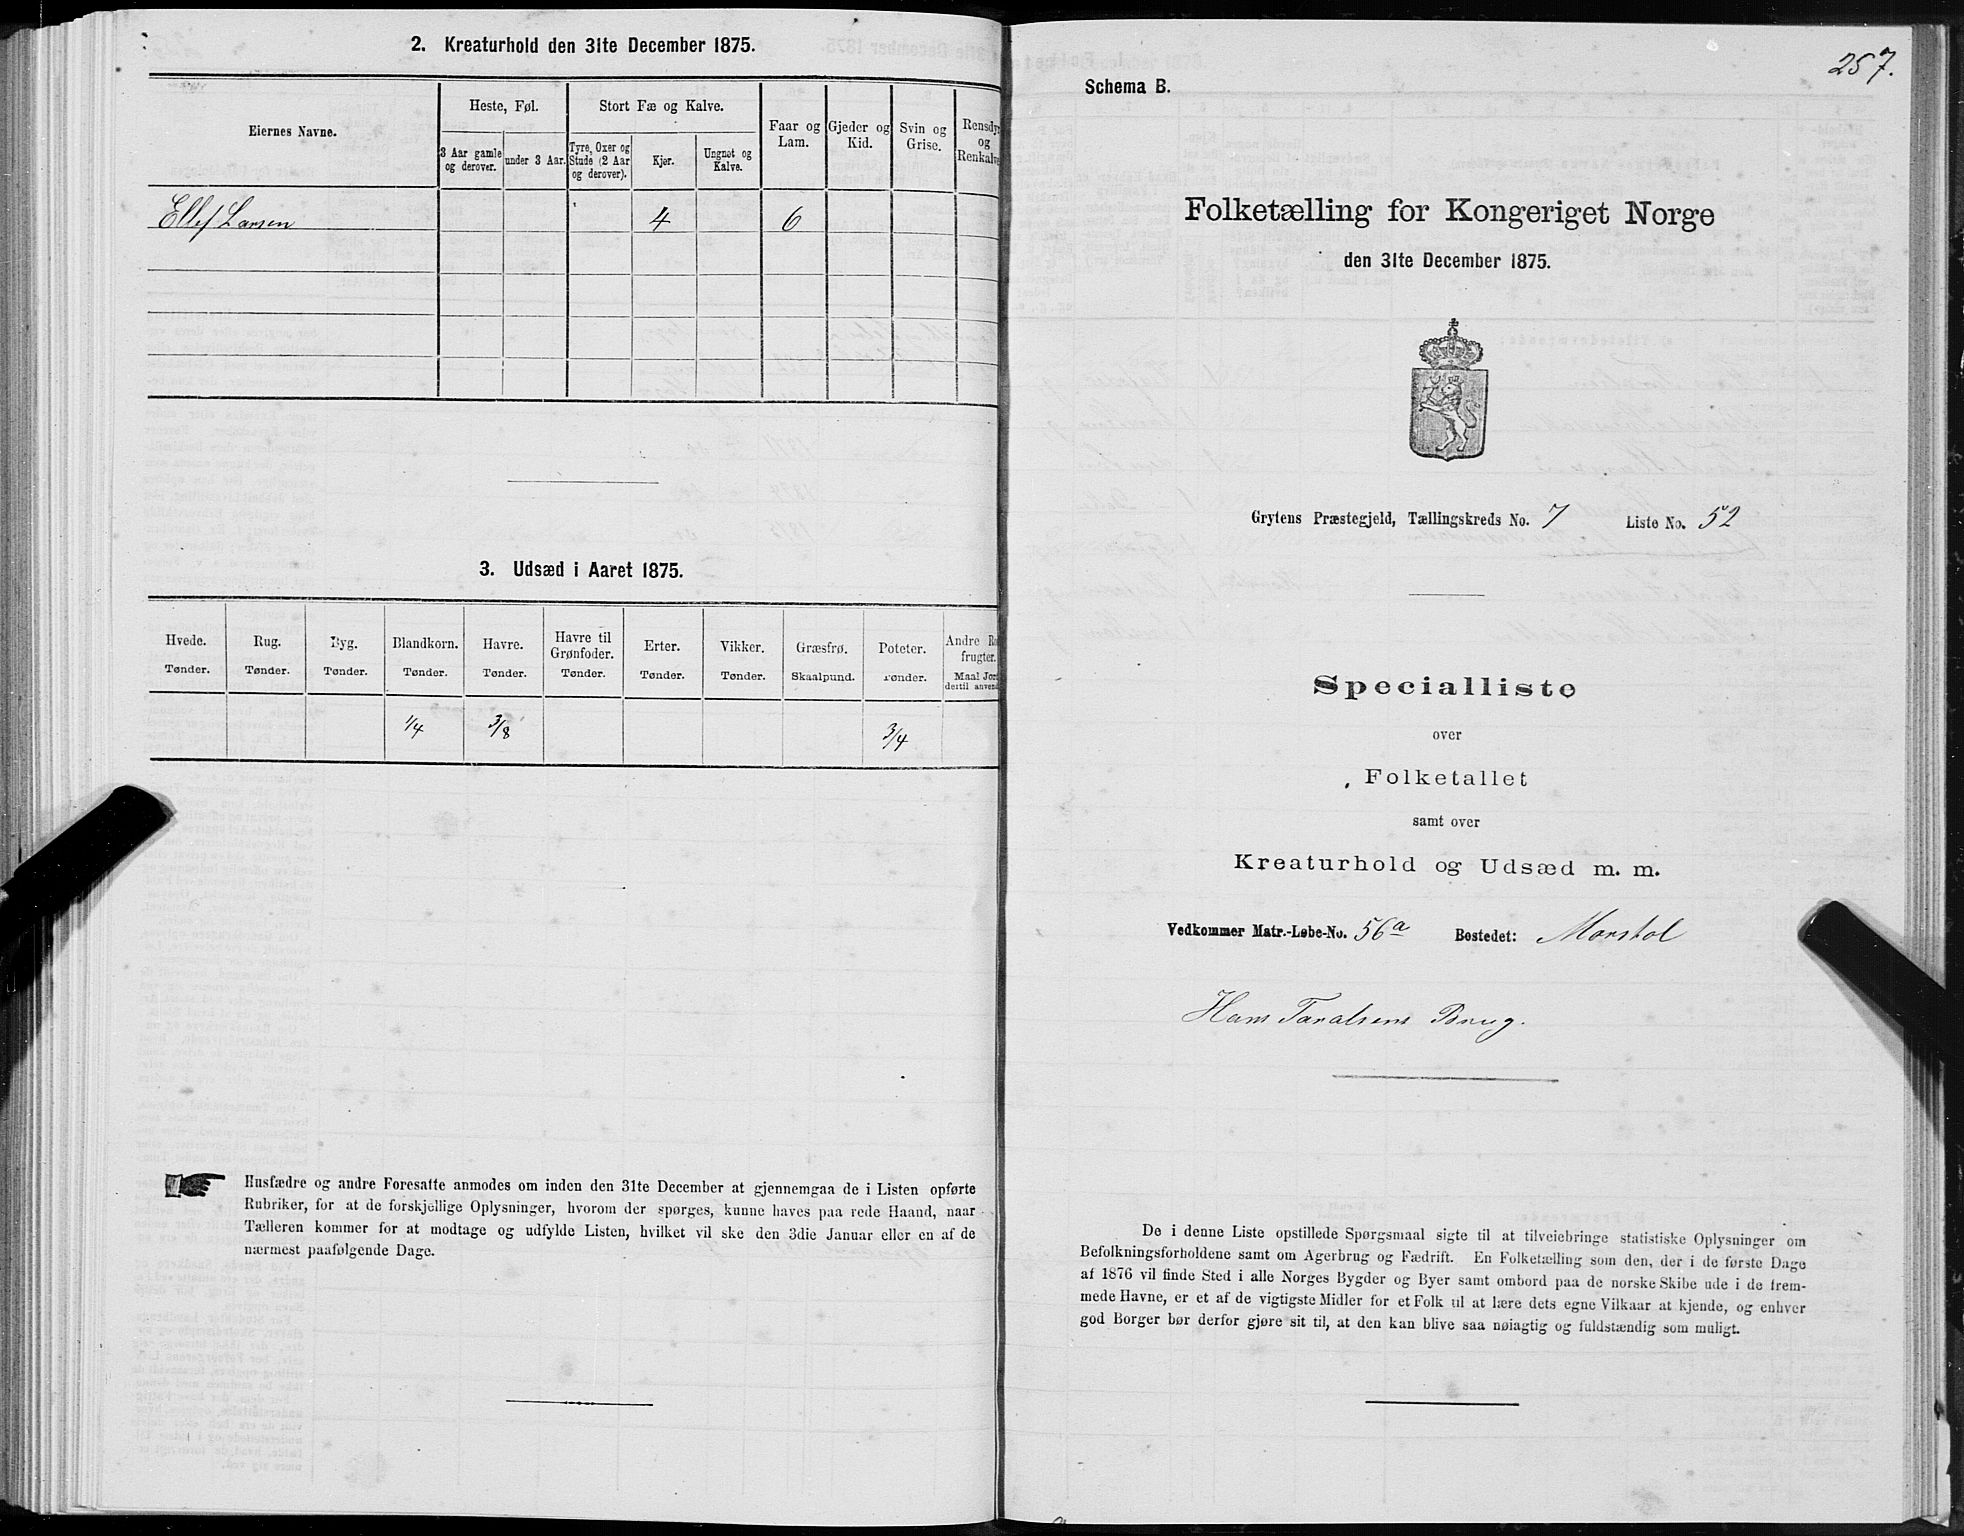 2. Kreaturhold den 31te December 1875.
Eiernes Navne.
Heste, Føl.
Stort Fæ og Kalve.
Faar og
Lam.
Gjeder og
Kid.
Svin og
Grise.
Rensdyr
og
Renkalve
3 Aar gamle
og derover.
under 3 Aar.
Tyre, Oxer og
Stude (2 Aar
og derover).
Kjør.
Ungnøt og
Kalve.
Ellef Larsen 4 6
3. Udsæd i Aaret 1875.
Hvede.
Tønder.
Rug.
Tønder.
Byg.
Tønder.
Blandkorn.
Tønder.
Havre.
Tønder.
Havre til
Grønfoder.
Tønder.
Erter.
Tønder.
Vikker.
Tønder.
Græsfrø.
Skaalpund.
Poteter.
Tønder.
Andre Ro
frugter.
Maal Jord
dertil anvend
1/4 3/8 3/4
Husfædre og andre Foresatte anmodes om inden den 31te December at gjennemgaa de i Listen opførte
Rubriker, for at de forskjellige Oplysninger, hvorom der spørges, kunne haves paa rede Haand, naar
Tælleren kommer for at modtage og udfylde Listen, hvilket vil ske den 3die Januar eller en af de
nærmest paafølgende Dage.
257.
Schema B.
Folketælling for Kongeriget Norge
den 31te December 1875.
Grytens Præstegjeld, Tællingskreds No. 7 Liste No. 52
Specialliste
over
Folketallet
samt over
Kreaturhold og Udsæd m. m.
Vedkommer Matr.-Løbe-No. 56a Bostedet: Morstøl
Hans Taralsens Brug.
De i denne Liste opstillede Spørgsmaal sigte til at tilveiebringe statistiske Oplysninger om
Befolkningsforholdene samt om Agerbrug og Fædrift. En Folketælling som den, der i de første Dage
af 1876 vil finde Sted i alle Norges Bygder og Byer samt ombord paa de norske Skibe ude i de frem-
mede Havne, er et af de vigtigste Midler for et Folk til at lære dets egne Vilkaar at kjende, og enhver
god Borger bør derfor gjøre sit til, at den kan blive saa nøiagtig og fuldstændig som muligt.